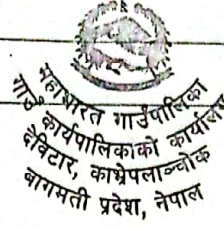 महाभारत गाउँपालिका
गाउँ कार्यपालिकाको कार्यालय
देविटार, काभ्रेपलाञ्चोक
बागमती प्रदेश, नेपाल